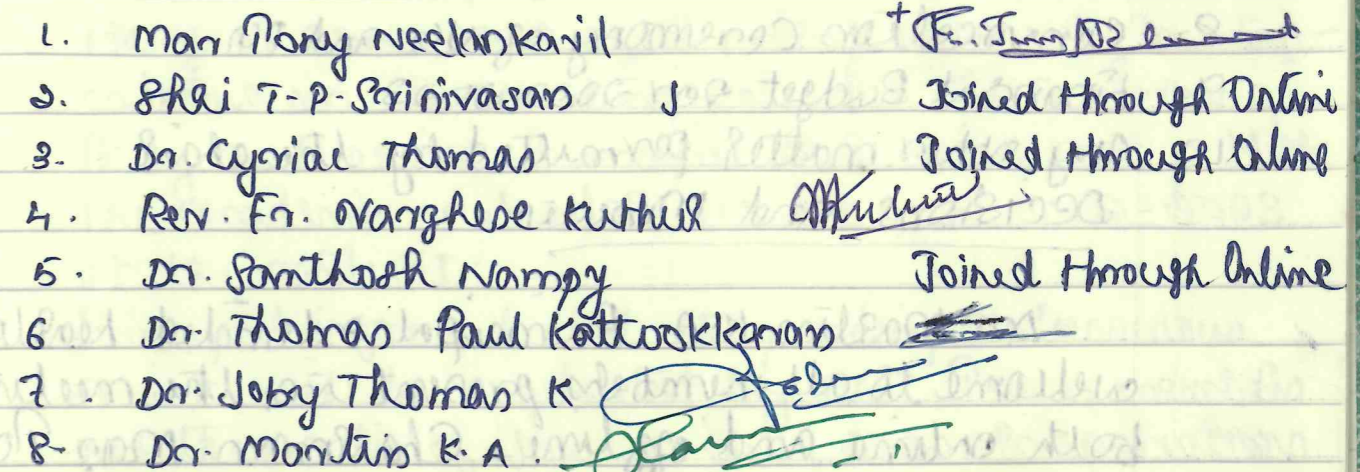 1. Mar Tony Neelankavil + Fr. Tony
2. Shri T-P-Srinivasan Joined through Online
3. Dr. Cyriac Thomas Joined through Online
4. Rev. Fr. Varghese Kuthur
5. Dr. Santhosh Nampy Joined through Online
6. Dr. Thomas Paul Kattookkaran
7. Dr. Joby Thomas K
8. Dr. Martin K. A.